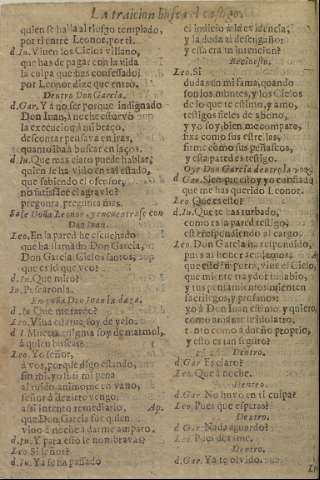 La traicion busca el castigo.
quien se halla al riesgo templado,
por ti entre Leonor, por ti.
d. Iu. Viven los Cielos villano,
que has de pagar con la vida
la culpa que has confessado;
por Leonor dize que entrò.
Dentro Don Garcia.
d. Gar. Yà no ser porque indignado
Don Iuan, à noche estorvò
la execucion à mi braço,
descontar pensava en iras,
quanto iba à buscar en laços.
d. Iu. Que mas claro puede hablar,
quien se ha vido en tal estado,
que sabiendo el ofensor,
no satisface el agravio?
pregunta pregunta mas.
Sale Doña Leonor, y encuentrase con
Don Iuan.
Leo. En la pared he escuchado
que ha llamado Don Garcia,
Don Garcia Cielos santos,
que es lo que veo?
d. Iu. Que miro?
Io. Pescaronla.
Empuña Don Iuan la daga.
d. Iu. Que me tardo?
Leo. Viva estatua soy de yelo.
d. I. Muerta enigma soy de marmol,
à quien buscas?
Leo. Yo señor,
à vos, porque digo estando,
sin mi, yo fui mi pena
al ruido animome en vano,
señor à deziros vengo,
assi intento remediarlo, Ap.
que Don Garcia fue quien
vino à noche à darme amparo.
d. Iu. Y para esso le nombravas?
Leo. Si señor?
d. Iu. Ya se ha passado
el indicio à la evidencia,
y la duda al desengaño:
y essa era tu intencion?
Leo. Si
duda sus mi fama, quando
son los montes, y los Cielos
de lo que te estimo, y amo,
testigos fieles de abono,
y yo soy, bien me comparo,
fixa como sus estrellas,
firme como sus peñascos,
y esta pared es testigo.
Oyese Don Garcia dentro la voz.
d. Gar. Siempre estoy yo confiado
que me has querido Leonor.
Leo. Que es esto?
d. Iu. Que te has turbado,
como es la pared testigo,
està respondiendo al cargo.
Leo. Don Garcia ha respondido,
pues ai honor acudamos,
que esse Impuro, vive el Cielo,
que miente traydor tus labios,
y tus pensamientos mienten
sacrilegos, y profanos:
yo à Don Iuan estimo, y quiero
como amante se idolatro,
tanto como à dueño proprio,
y esto es tan seguro?
Dentro.
d. Gar. Es claro?
Leo. Que à noche.
Dentro.
d. Gar. No huvo en ti culpa?
Leo. Pues que esperas?
Dentro.
d. Gar. Nada aguardo?
Leo. Pues dexame.
Dentro.
d. Gar. Ya te olvido.